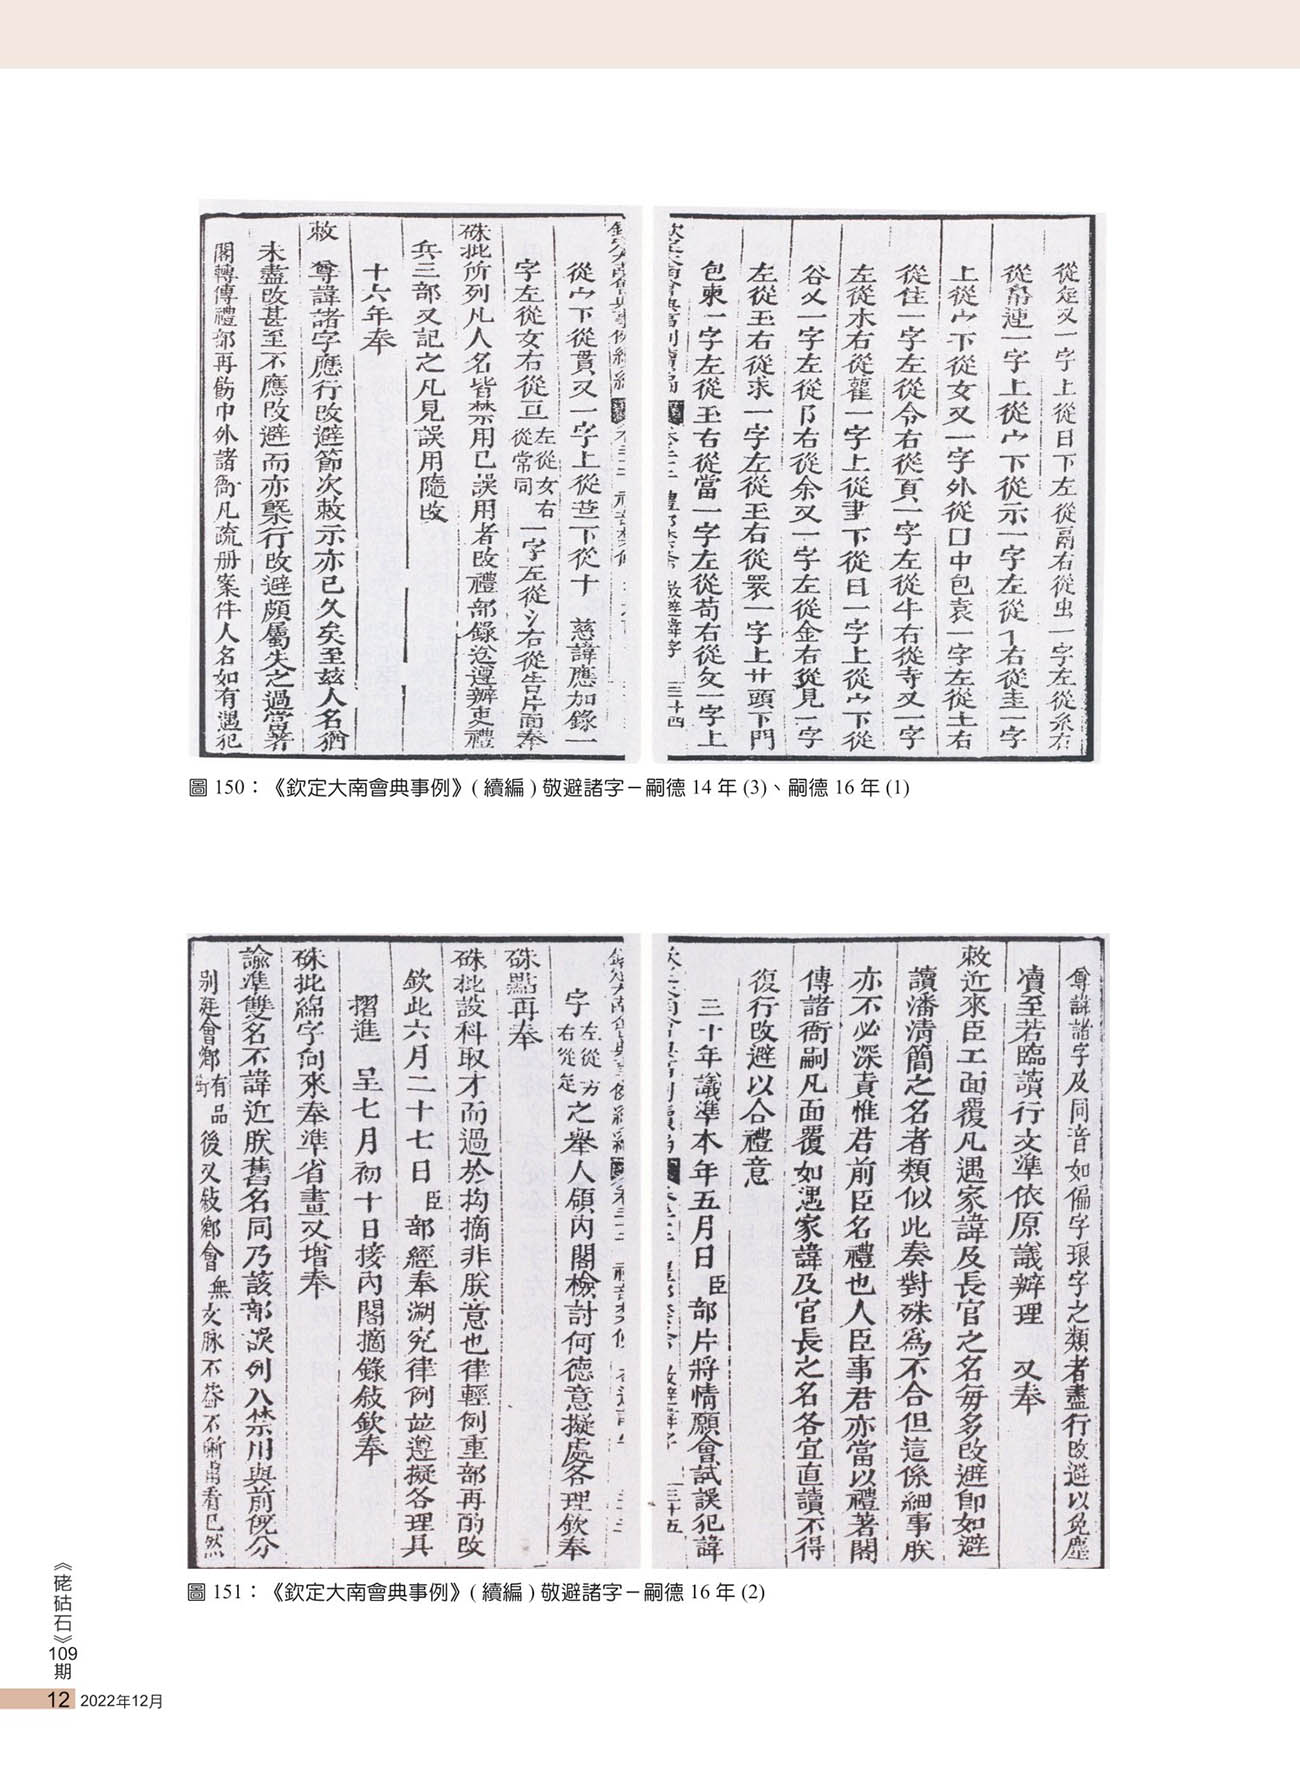 從定又一字上從日下左從鬲右從虫一字左從糸右
從帛連一字上從宀下從示一字左從亻右從圭一字
上從宀下從女又一字外從口中包袁一字左從土右
從住一字左從令右從頁一字左從牛右從寺又一字
左從木右從雚一字上從聿下從日一字上從宀下從
谷又一字左從阝右從余又一字左從金右從見一字
左從玉右從求一字左從王右從眾一字上廾頭下門
包東一字左從玉右從當一字左從苟右從攵一字上
從宀下從貫又一字上從𦰩下從十 慈諱應加錄一
字左從女右從亘左從女右從常同一字左從氵右從告片面奉
硃批所列凡人名皆禁用已誤用者改禮部錄咨遵辦吏禮
兵三部又記之凡見誤用隨改
十六年奉
敕 尊諱諸字應行改避節次敕示亦已久矣至茲人名猶
未盡改甚至不應改避而亦槩行改避頗屬失之過當著
閣轉傳禮部再飭中外諸衙凡疏册案件人名如有遇犯
圖 150：《欽定大南會典事例》( 續編 ) 敬避諸字－嗣德 14 年 (3)、嗣德 16 年 (1)
尊諱諸字及同音如偏字琅字之類者盡行改避以免塵
凟至若臨讀行文準依原議辦理 又奉
敕近來臣工面覆凡遇家諱及長官之名每多改避即如避
讀潘清簡之名者類似此奏對殊為不合但這係細事朕
亦不必深責惟君前臣名禮也人臣事君亦當以禮著閣
傳諸衙嗣凡面覆如遇家諱及官長之名各宜直讀不得
復行改避以合禮意
三十年議準本年五月日臣部片將情願會試誤犯諱
字左從方右從定之舉人領內閣檢討何德意擬處各理欽奉
硃點再奉
硃批設科取才而過於拘摘非朕意也律輕例重部再酌改
欽此六月二十七日臣部經奉溯究律例並遵擬各理具
摺進 呈七月初十日接內閣摘錄敍欽奉
硃批綿字向來奉準省畫又增奉
諭準雙名不諱近朕舊名同乃該部誤列入禁用與前旣分
別廷會鄉有品後又敍鄉會無文脉不
圖 151：《欽定大南會典事例》( 續編 ) 敬避諸字－嗣德 16 年 (2)
《硓𥑮石》109期
12 2022年12月